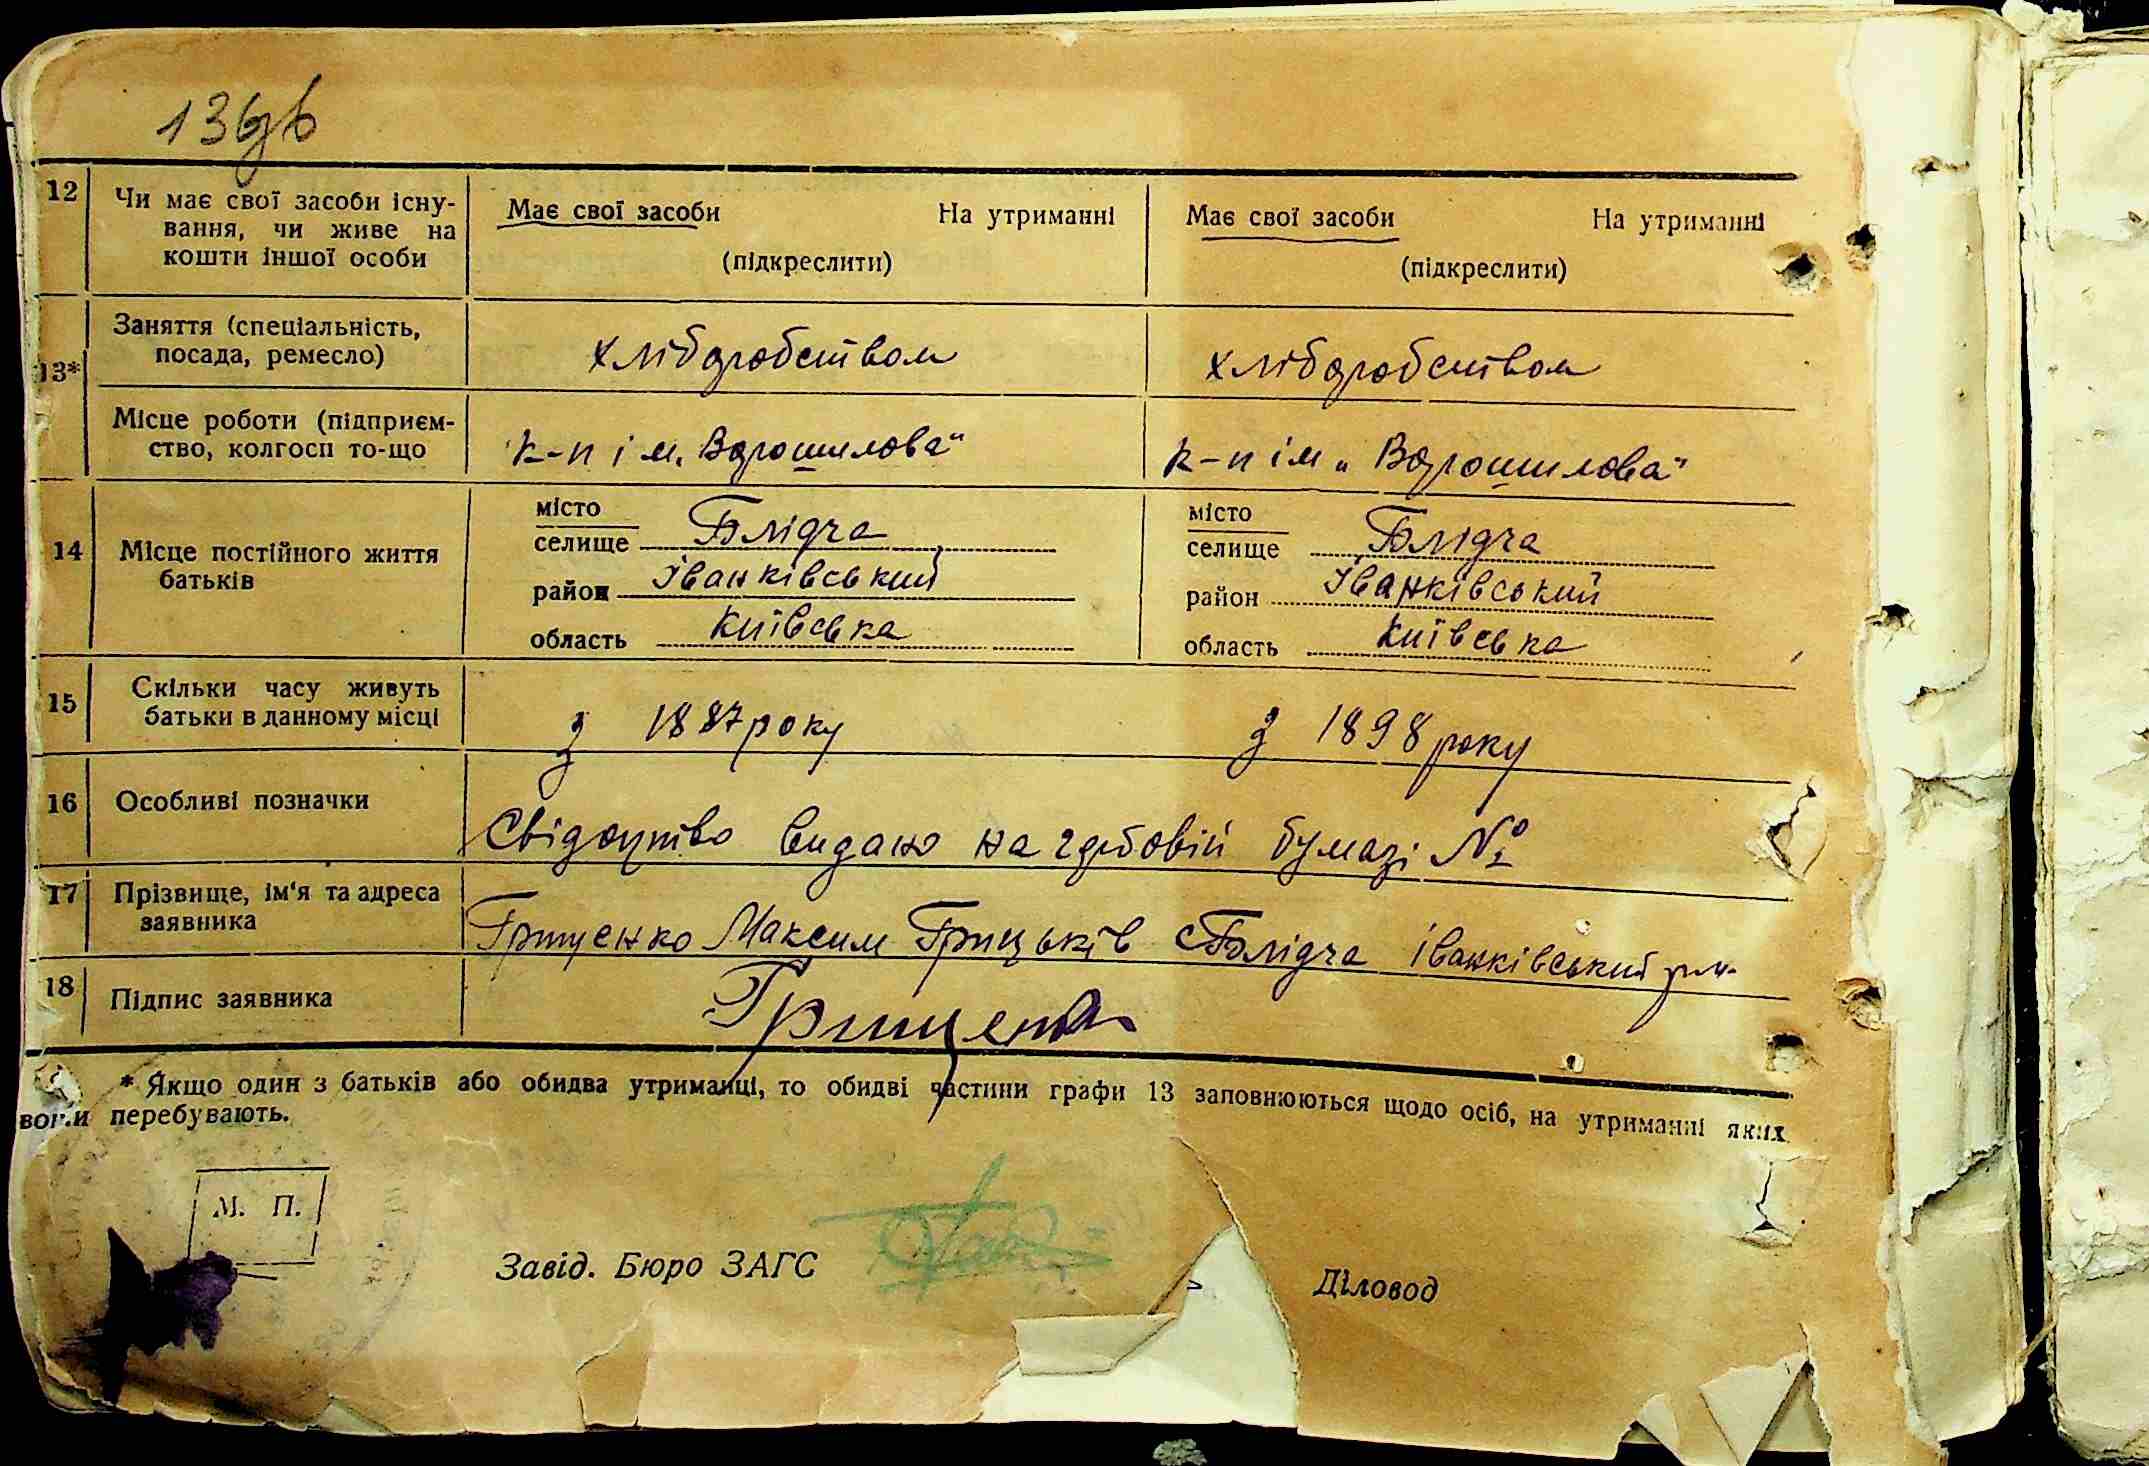 13 зв
12 Чи має свої засоби існу- Має свої засоби На утриманні Має свої засоби На утриманні
вання, чи живе на
кошти іншої особи (підкреслити) (підкреслити)
13* Заняття (спеціальність, хліборобством хліборобством
посада, ремесло)
Місце роботи (підприєм- к-п ім. Ворошилова" к-п ім „Ворошилова"
ство, колгосп то-що
14 Місце постійного життя місто місто
батьків селище Блідча селище Блідча
район Іванківський район Іванківський
область Київська область Київська
15 Скільки часу живуть з 1887 року з 1898 року
батьки в данному місці
16 Особливі позначки Свідоцтво видано на гербовій бумазі №
17 Прізвище, ім'я та адреса Грищенко Максим Грицьків с Блідча іванківський р-н
заявника
18 Підпис заявника Грищенко
* Якщо один з батьків або обидва утриманці, то обидві частини графи 13 заповнюються щодо осіб, на утриманні яких
вони перебувають.
М. П.
Завід. Бюро ЗАГС Діловод